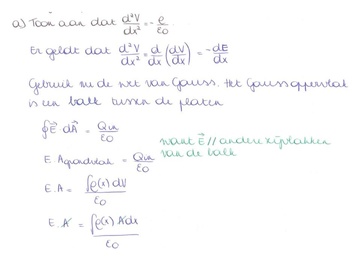 a) Toon aan dat d²V/dx² = -ρ/ε0
Er geldt dat d²V/dx² = d/dx (dV/dx) = -dE/dx
Gebruik nu de wet van Gauss. Het Gaussoppervlak
is een balk tussen de platen
∮E⃗·dA⃗ = Qin/ε0
want E⃗ // andere zijvlakken
van de balk
E. Agrondvlak = Qin/ε0
E.A = ∫ρ(x) dV/ε0
E.A = ∫ρ(x) Adx/ε0